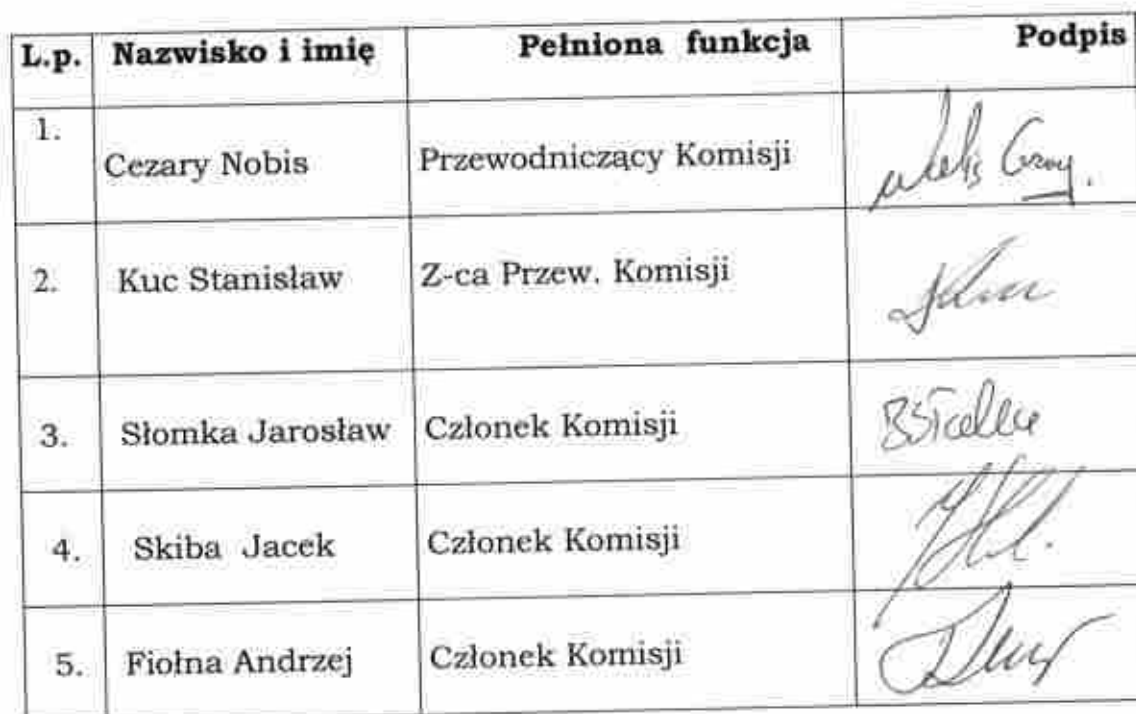 L.p. Nazwisko i imię Pełniona funkcja Podpis
1. Cezary Nobis Przewodniczący Komisji
2. Kuc Stanisław Z-ca Przew. Komisji
3. Słomka Jarosław Członek Komisji
4. Skiba Jacek Członek Komisji
5. Fiołna Andrzej Członek Komisji